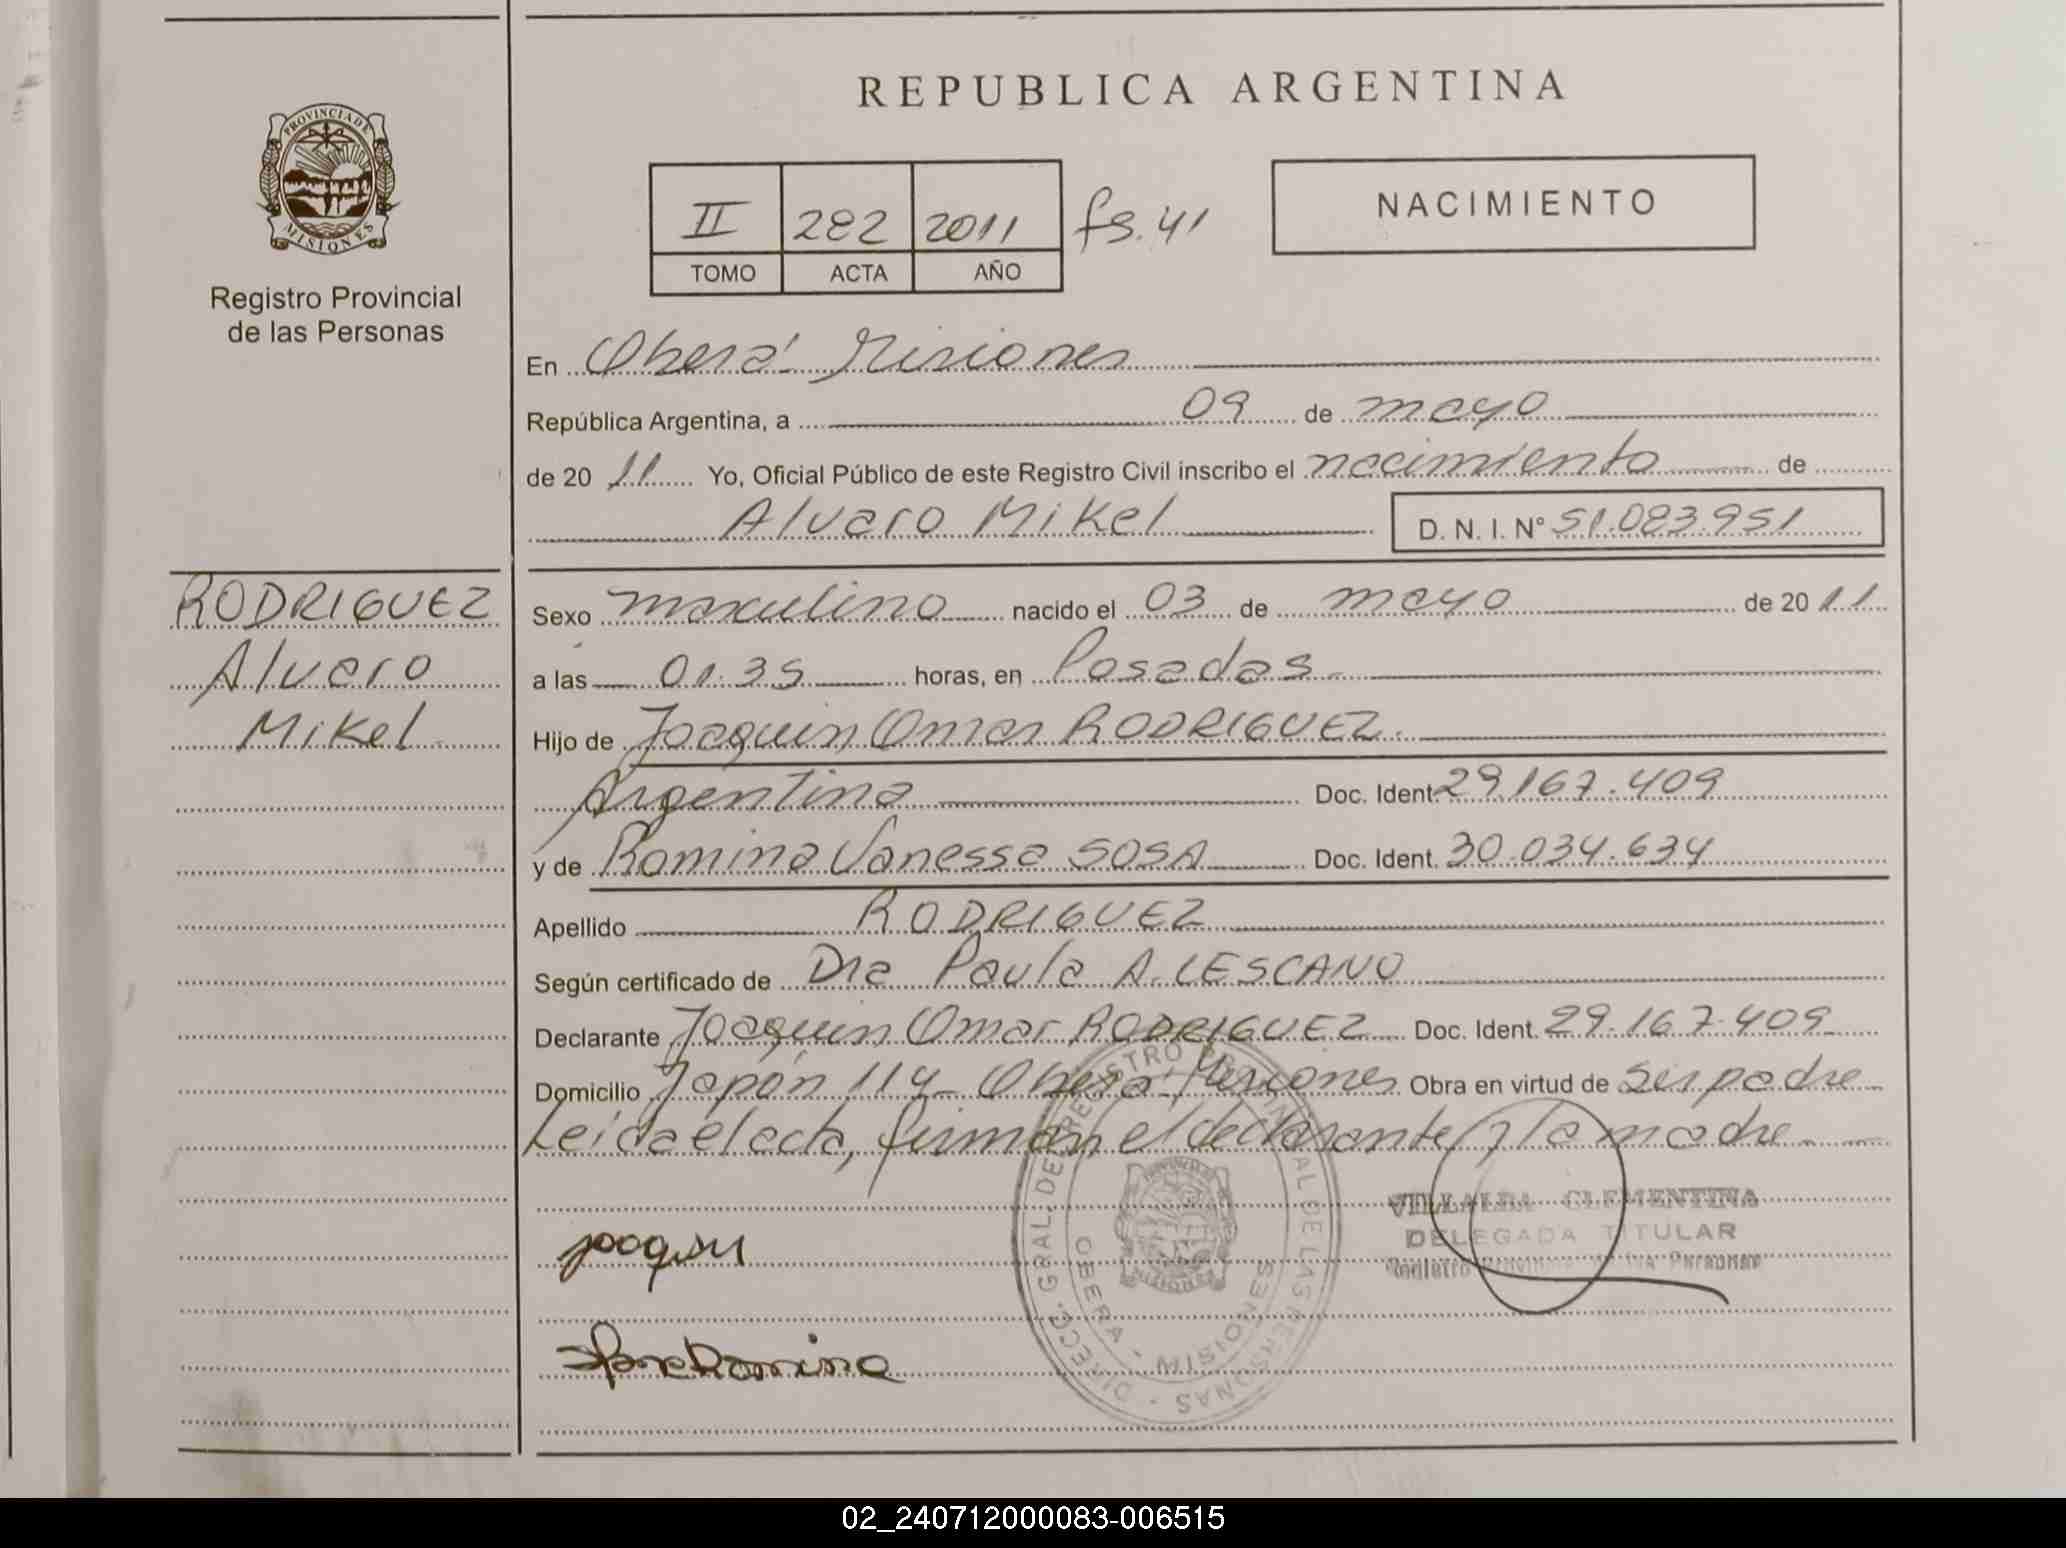 PROVINCIA DE
MISIONES
Registro Provincial
de las Personas
RODRIGUEZ
Alvaro
Mikel
REPUBLICA ARGENTINA
II 282 2011 fs. 41
TOMO ACTA AÑO
NACIMIENTO
En Oberá Misiones
República Argentina, a 09 de mayo
de 20 11 Yo, Oficial Público de este Registro Civil inscribo el nacimiento de
Alvaro Mikel D. N. I. Nº 51.083.951
Sexo masculino nacido el 03 de mayo de 20 11
a las 01:35 horas, en Posadas
Hijo de Joaquin Omar RODRIGUEZ.
Argentina Doc. Ident. 29.167.409
y de Romina Vanessa SOSA Doc. Ident. 30.034.634
Apellido RODRIGUEZ
Según certificado de Dra Paula A. LESCANO
Declarante Joaquin Omar RODRIGUEZ Doc. Ident. 29.167.409
Domicilio Japón 114 Oberá, Misiones Obra en virtud de ser padre
Leída el acta, firman el declarante y la madre
VILLALBA CLEMENTINA
DELEGADA TITULAR
Registro Provincial de las Personas
joaquin
DIRECC. GRAL. DE REGISTRO PROVINCIAL DE LAS PERSONAS
OBERA - MISIONES
Romina
02_240712000083-006515